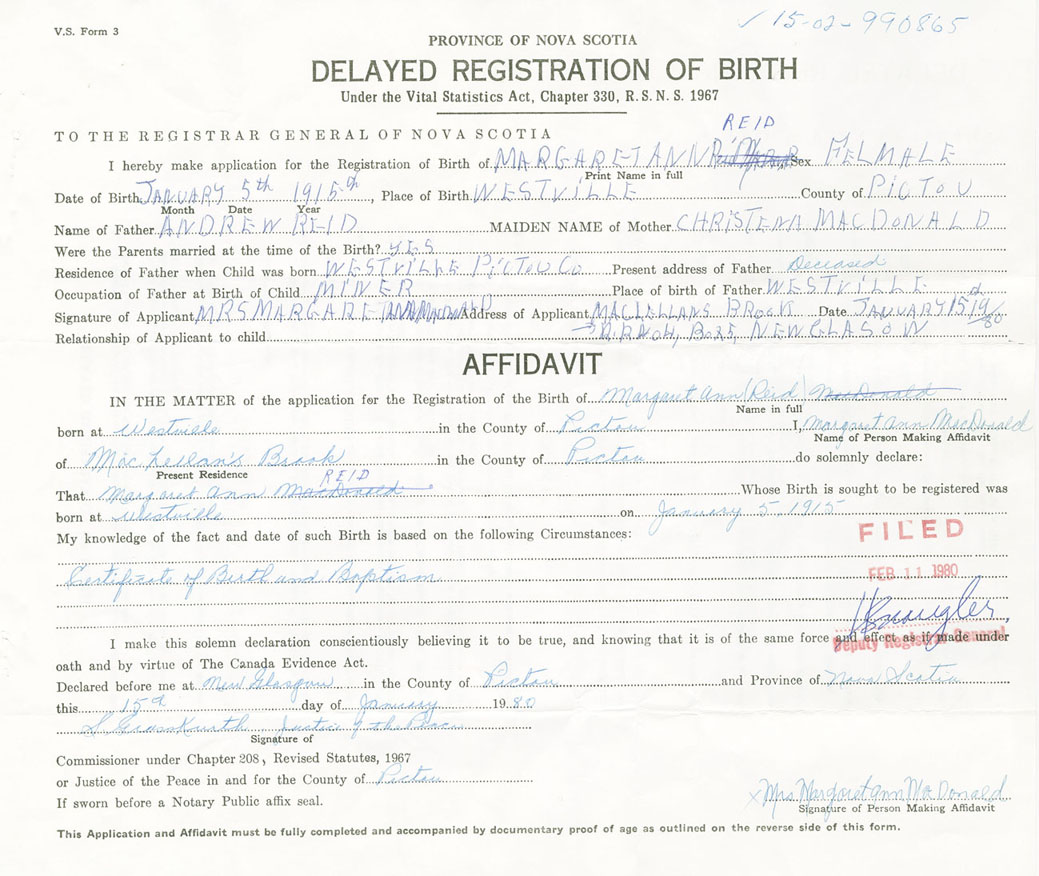 V.S. Form 3
✓ 15-02-990865
PROVINCE OF NOVA SCOTIA
DELAYED REGISTRATION OF BIRTH
Under the Vital Statistics Act, Chapter 330, R.S.N.S. 1967
TO THE REGISTRAR GENERAL OF NOVA SCOTIA
REID
I hereby make application for the Registration of Birth of MARGARET ANN Sex FELMALE
Print Name in full
Date of Birth JANUARY 5th 1915th, Place of Birth WESTVILLE County of PICTOU
Month Date Year
Name of Father ANDREW REID MAIDEN NAME of Mother CHRISTENA MACDONALD
Were the Parents married at the time of the Birth? YES
Residence of Father when Child was born WESTVILLE PICTOU Co Present address of Father Deceased
Occupation of Father at Birth of Child MINER Place of birth of Father WESTVILLE
Signature of Applicant MRS MARGARET Address of Applicant MACLELLANS BROOK Date JANUARY 15 19/80
Relationship of Applicant to child NEW GLASOW
AFFIDAVIT
IN THE MATTER of the application for the Registration of the Birth of Margaret Ann (Reid) MacDonald
Name in full
born at Westville in the County of Pictou I, Margaret Ann MacDonald
Name of Person Making Affidavit
of MacLellan's Brook in the County of Pictou do solemnly declare:
Present Residence
REID
That Margaret Ann MacDonald Whose Birth is sought to be registered was
born at Westville on January 5, 1915
My knowledge of the fact and date of such Birth is based on the following Circumstances:
FILED
Certificate of Birth and Baptism
FEB 11 1980
I make this solemn declaration conscientiously believing it to be true, and knowing that it is of the same force and effect as if made under
Deputy Registrar General
oath and by virtue of The Canada Evidence Act.
Declared before me at New Glasgow in the County of Pictou and Province of Nova Scotia
this 15th day of January 1980
Justice of the Peace
Signature of
Commissioner under Chapter 208, Revised Statutes, 1967
or Justice of the Peace in and for the County of Pictou
If sworn before a Notary Public affix seal.
x Mrs Margaret Ann MacDonald
Signature of Person Making Affidavit
This Application and Affidavit must be fully completed and accompanied by documentary proof of age as outlined on the reverse side of this form.